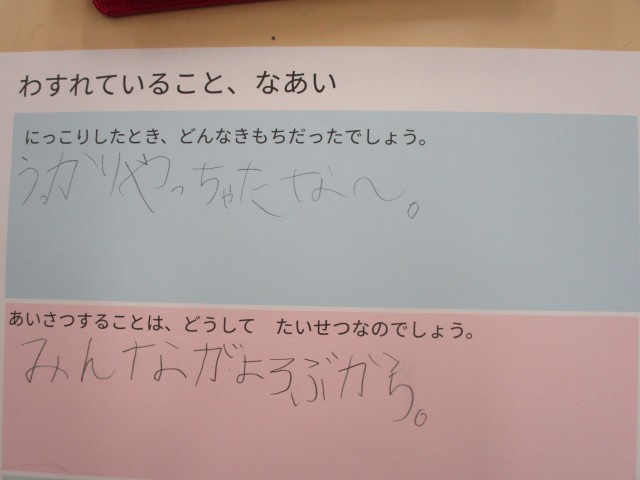 わすれていること、なあい
にっこりしたとき、どんなきもちだったでしょう。
うっかりやっちゃたな〜。
あいさつすることは、どうして　たいせつなのでしょう。
みんながよろぶから。